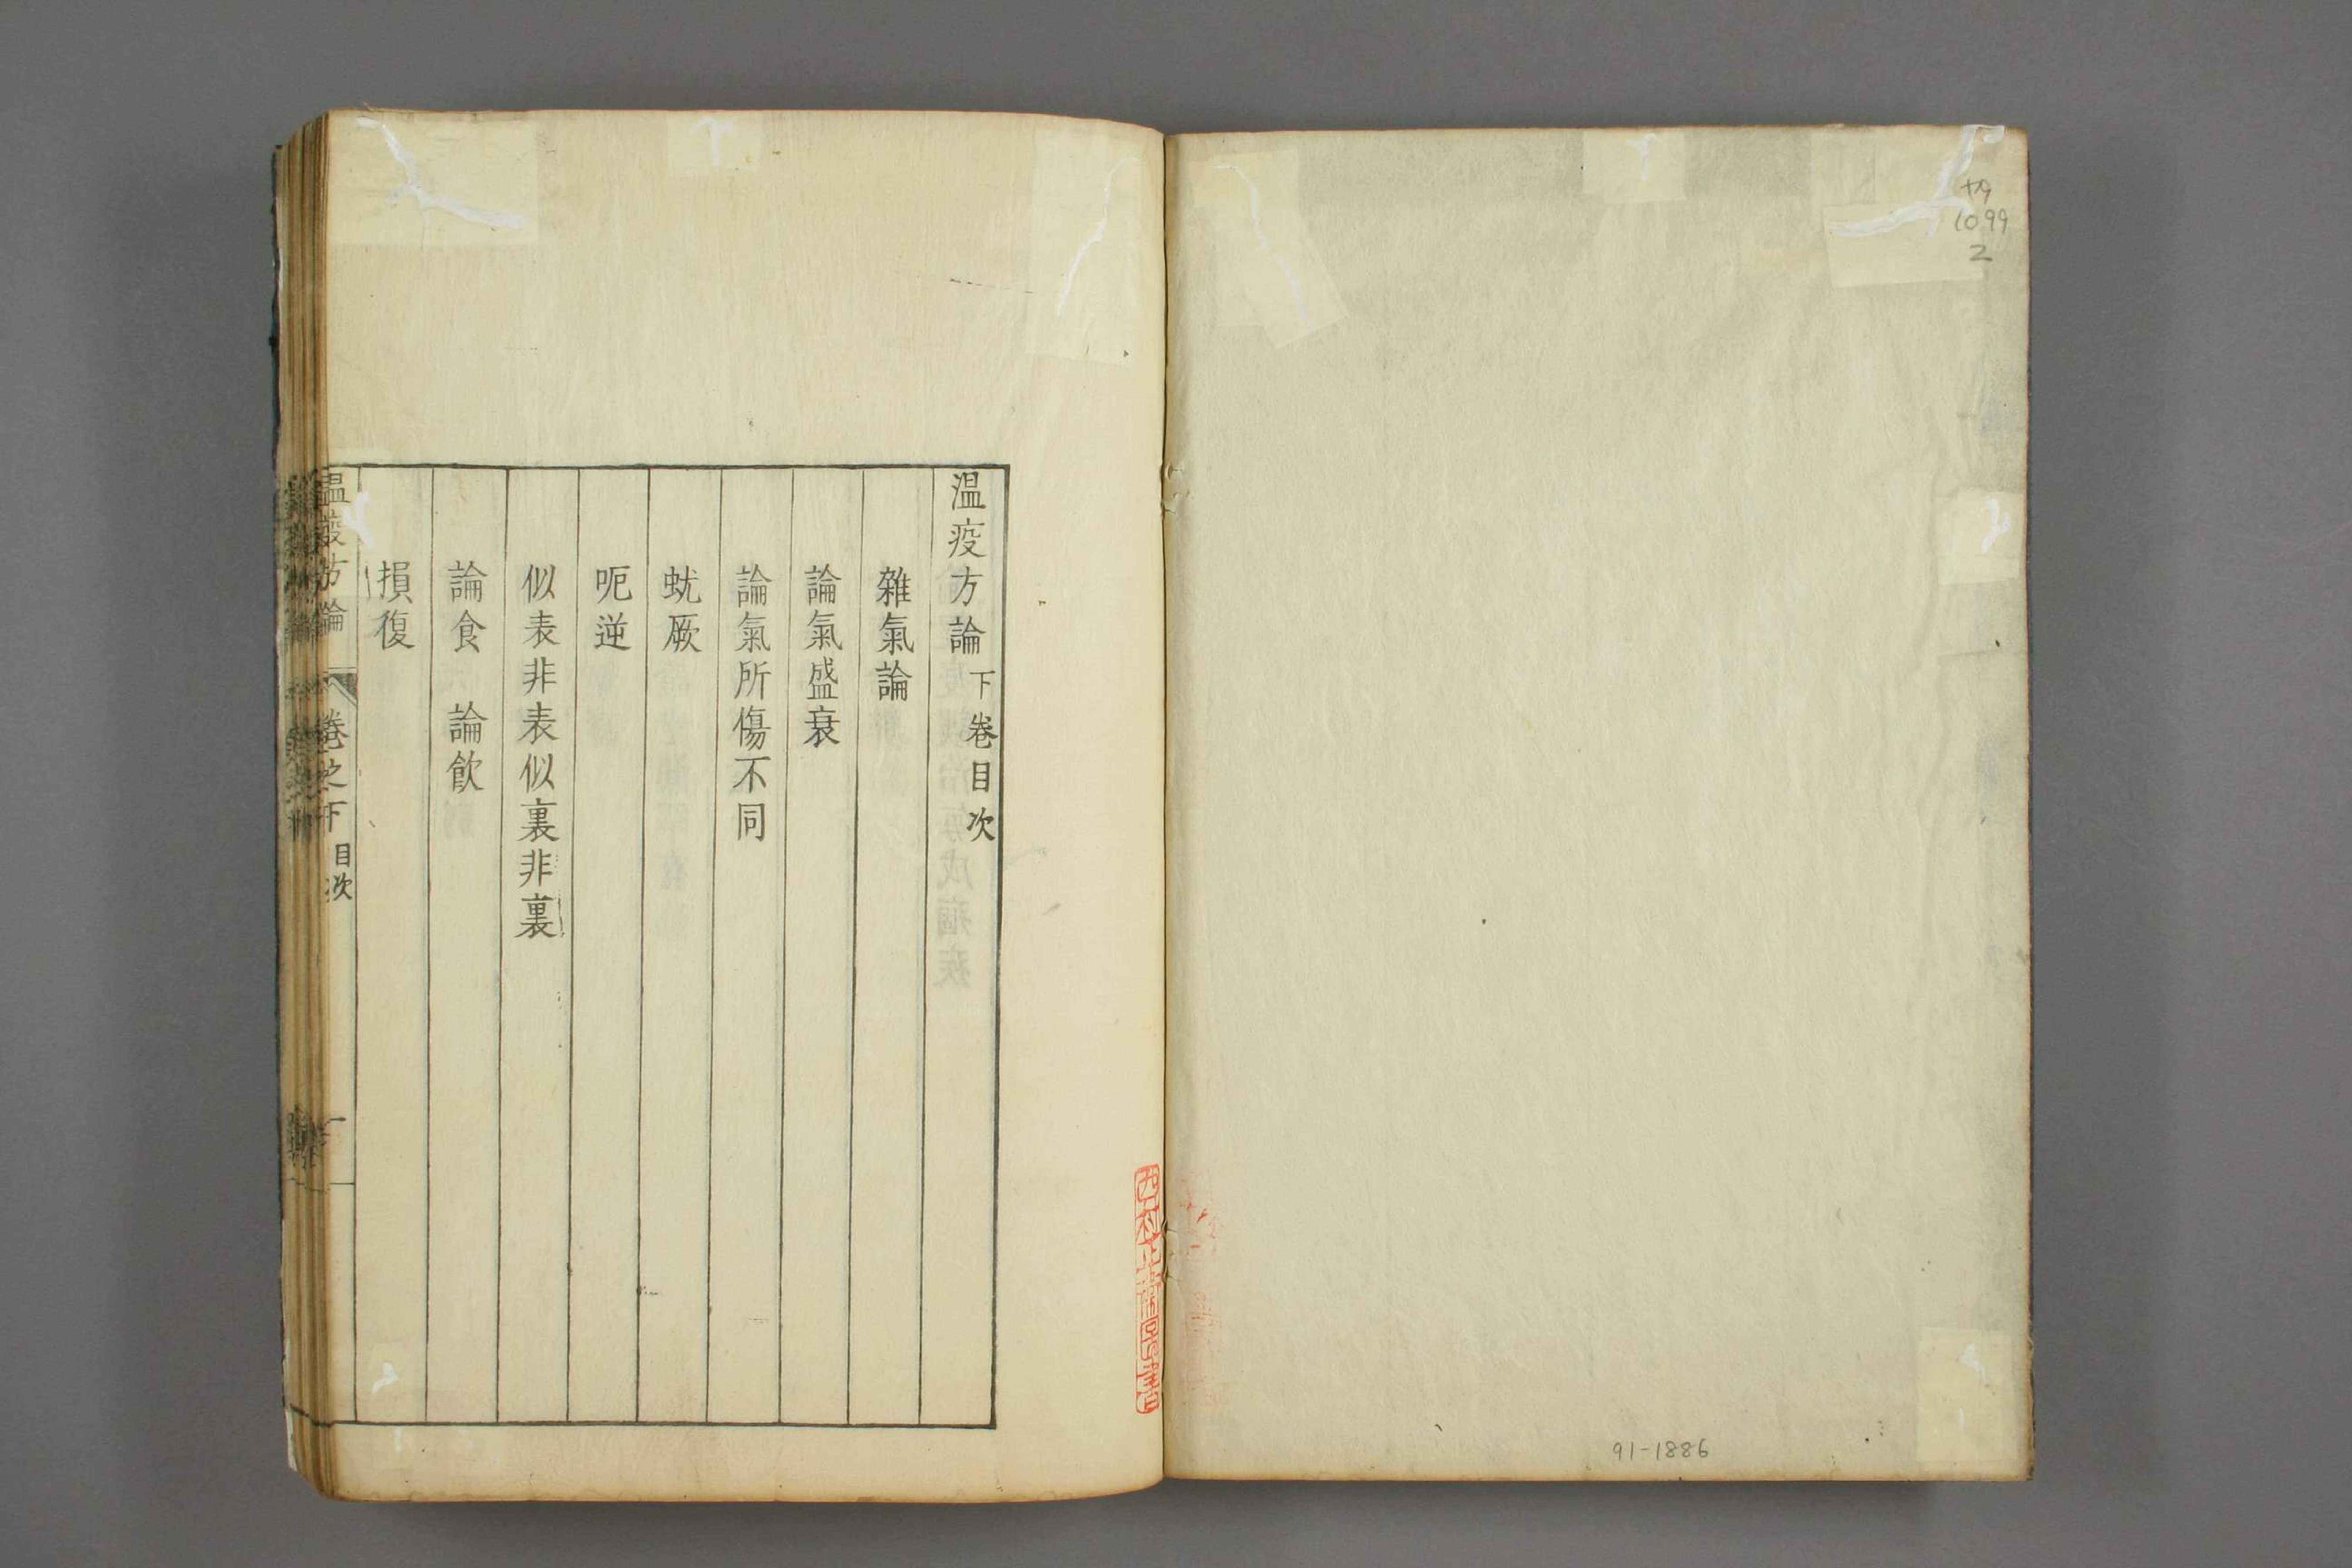 1099
2
91-1886
温疫方論下卷目次
雜氣論
論氣盛衰
論氣所傷不同
蚘厥
呃逆
似表非表似裏非裏
論食 論飲
損復
温疫方論 卷之下 目次 一